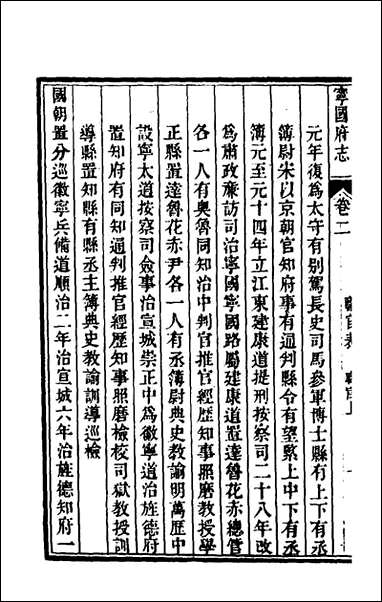 寧國府志 卷二
元年復爲太守有别駕長史司馬參軍博士縣有上下有丞
簿尉宋以京朝官知府事有通判縣令有望緊上中下有丞
簿元至元十四年立江東建康道提刑按察司二十八年改
爲肅政廉訪司治寧國寧國路屬建康道置達魯花赤總管
各一人有奥魯同知治中判官推官經歷知事照磨教授學
正縣置達魯花赤尹各一人有丞簿尉典史教諭明萬歷中
設寧太道按察司僉事治宣城崇正中爲徽寧道治旌德府
置知府有同知通判推官經歷知事照磨檢校司獄教授訓
導縣置知縣有縣丞主簿典史教諭訓導巡檢
國朝置分巡徽寧兵備道順治二年治宣城六年治旌德知府一